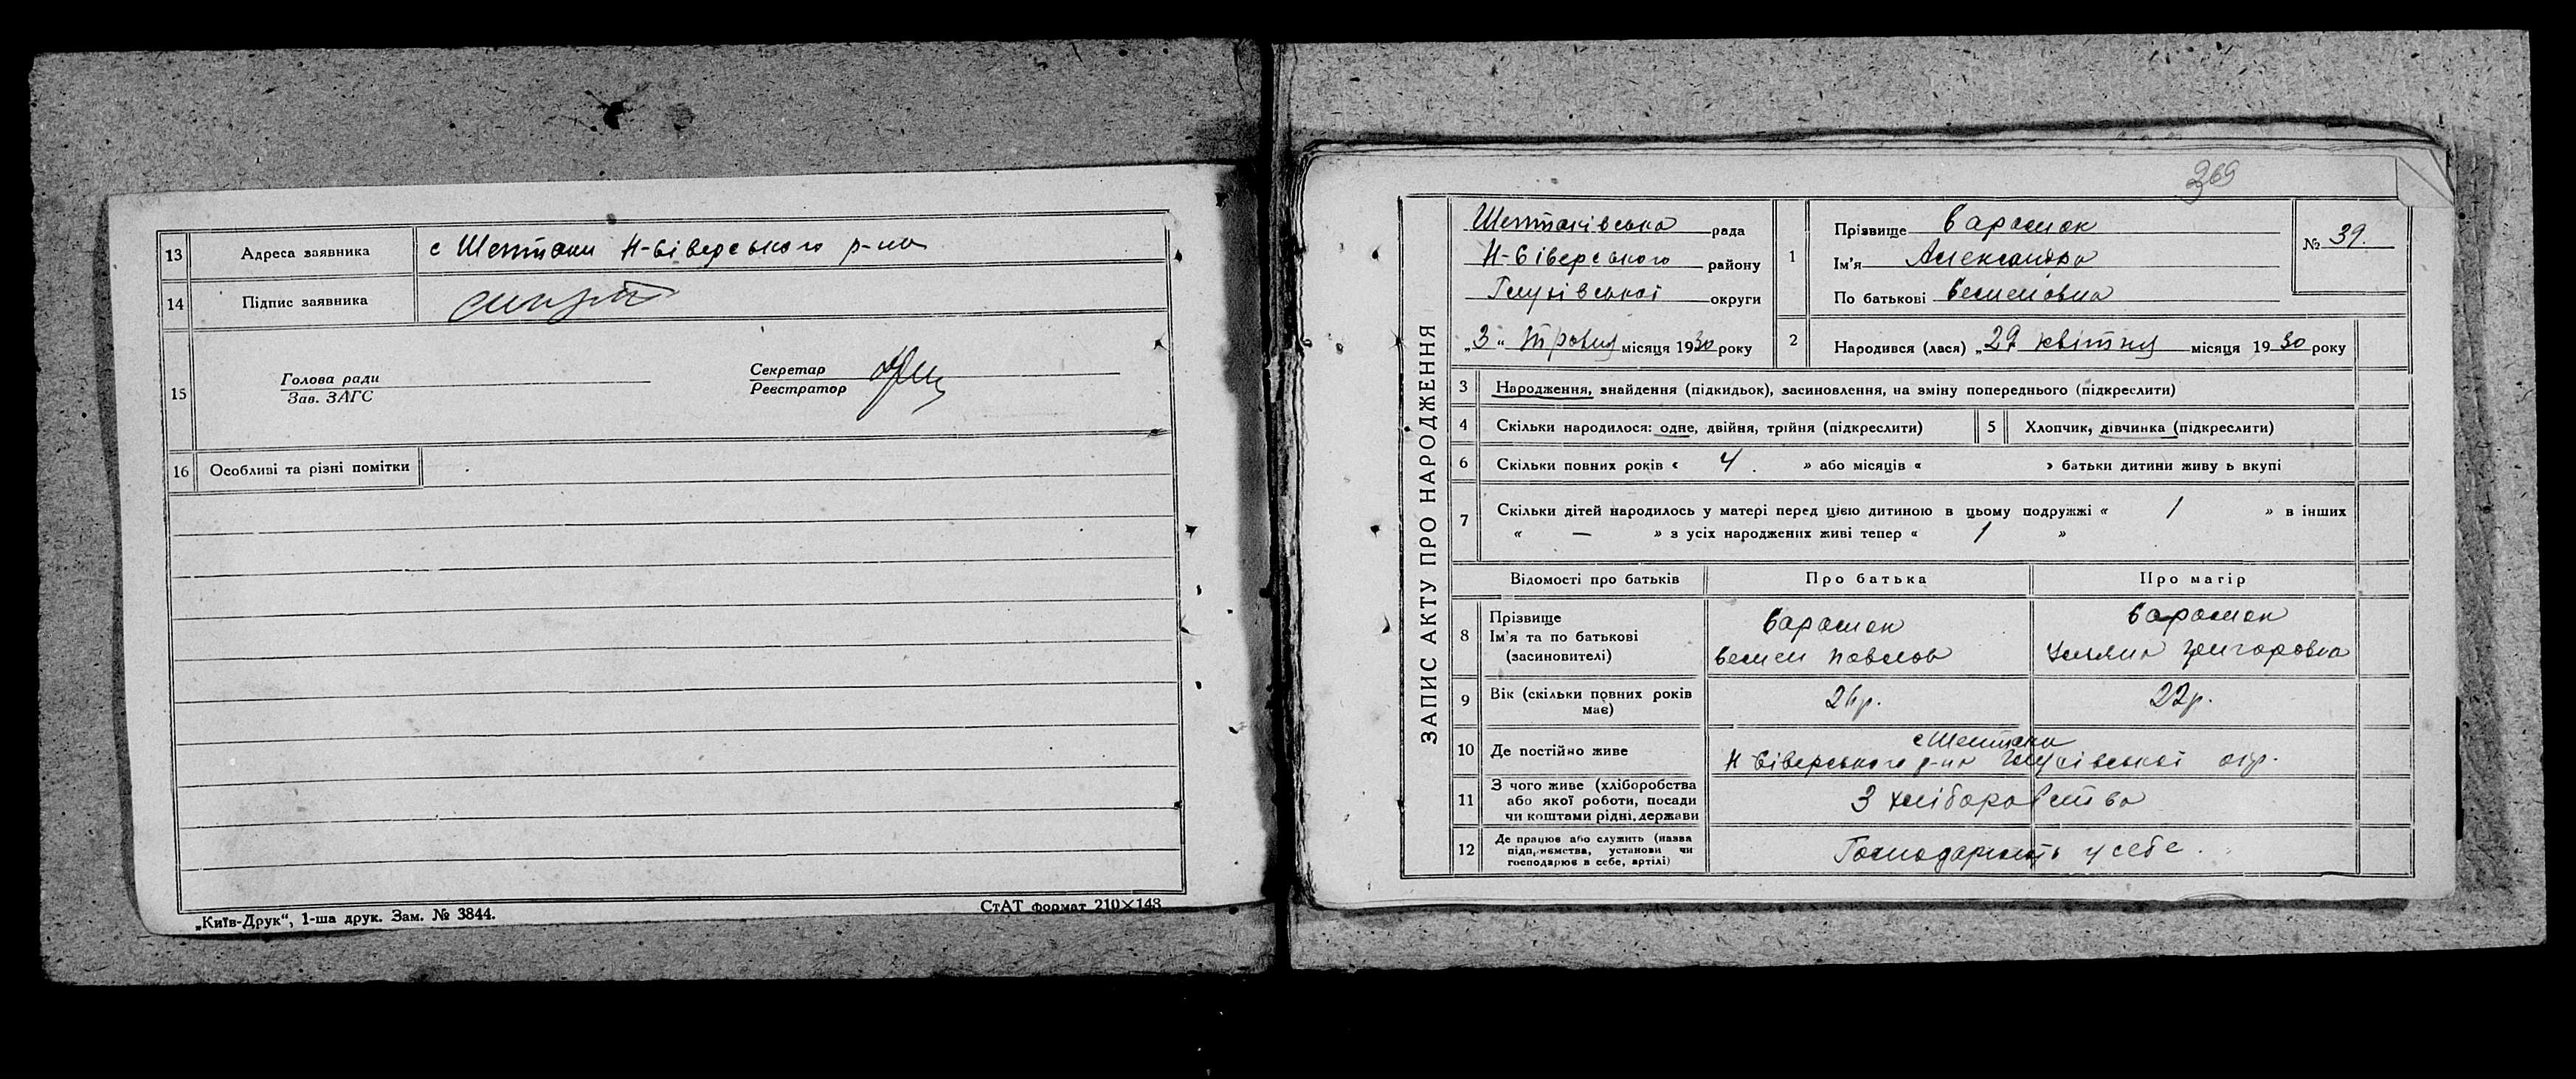 13 Адреса заявника с Шептаки Н-Сіверського р-на
14 Підпис заявника
15 Голова ради
Зав. ЗАГС
Секретар
Реєстратор
16 Особливі та різні помітки
„Київ-Друк“, 1-ша друк. Зам. № 3844.
СтАТ формат 210×148
369
ЗАПИС АКТУ ПРО НАРОДЖЕННЯ
Шептаківська рада
Н-Сіверського району
Глухівської округи
„3“ травня місяця 1930 року
1 Прізвище
Ім'я Александра
По батькові Семеновна
№ 39.
2 Народився (лася) „29 квітня місяця 1930 року
3 Народження, знайдення (підкидьок), засиновлення, на зміну попереднього (підкреслити)
4 Скільки народилося: одне, двійня, трійня (підкреслити)
5 Хлопчик, дівчинка (підкреслити)
6 Скільки повних років « 4. » або місяців « » батьки дитини живу ь вкупі
7 Скільки дітей народилось у матері перед цією дитиною в цьому подружжі « 1 » в інших
« — » з усіх народжених живі тепер « 1 »
Відомості про батьків Про батька Про матір
8 Прізвище
Ім'я та по батькові
(засиновителі)
Семен Павлов
Григоровна
9 Вік (скільки повних років
має)
26р.
22р.
10 Де постійно живе
с Шептаки
Н Сіверського р-на Глухівської окр.
11 З чого живе (хліборобства
або якої роботи, посади
чи коштами рідні, держави
З хліборобства
12 Де працює або служить (назва
підприємства, установи чи
господарює в себе, артілі)
Господарюють у себе.